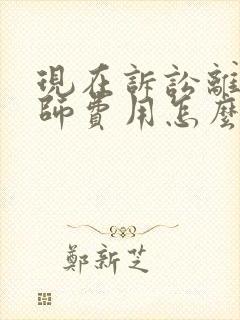 現在訴訟離
師費用怎麼
鄭新芝